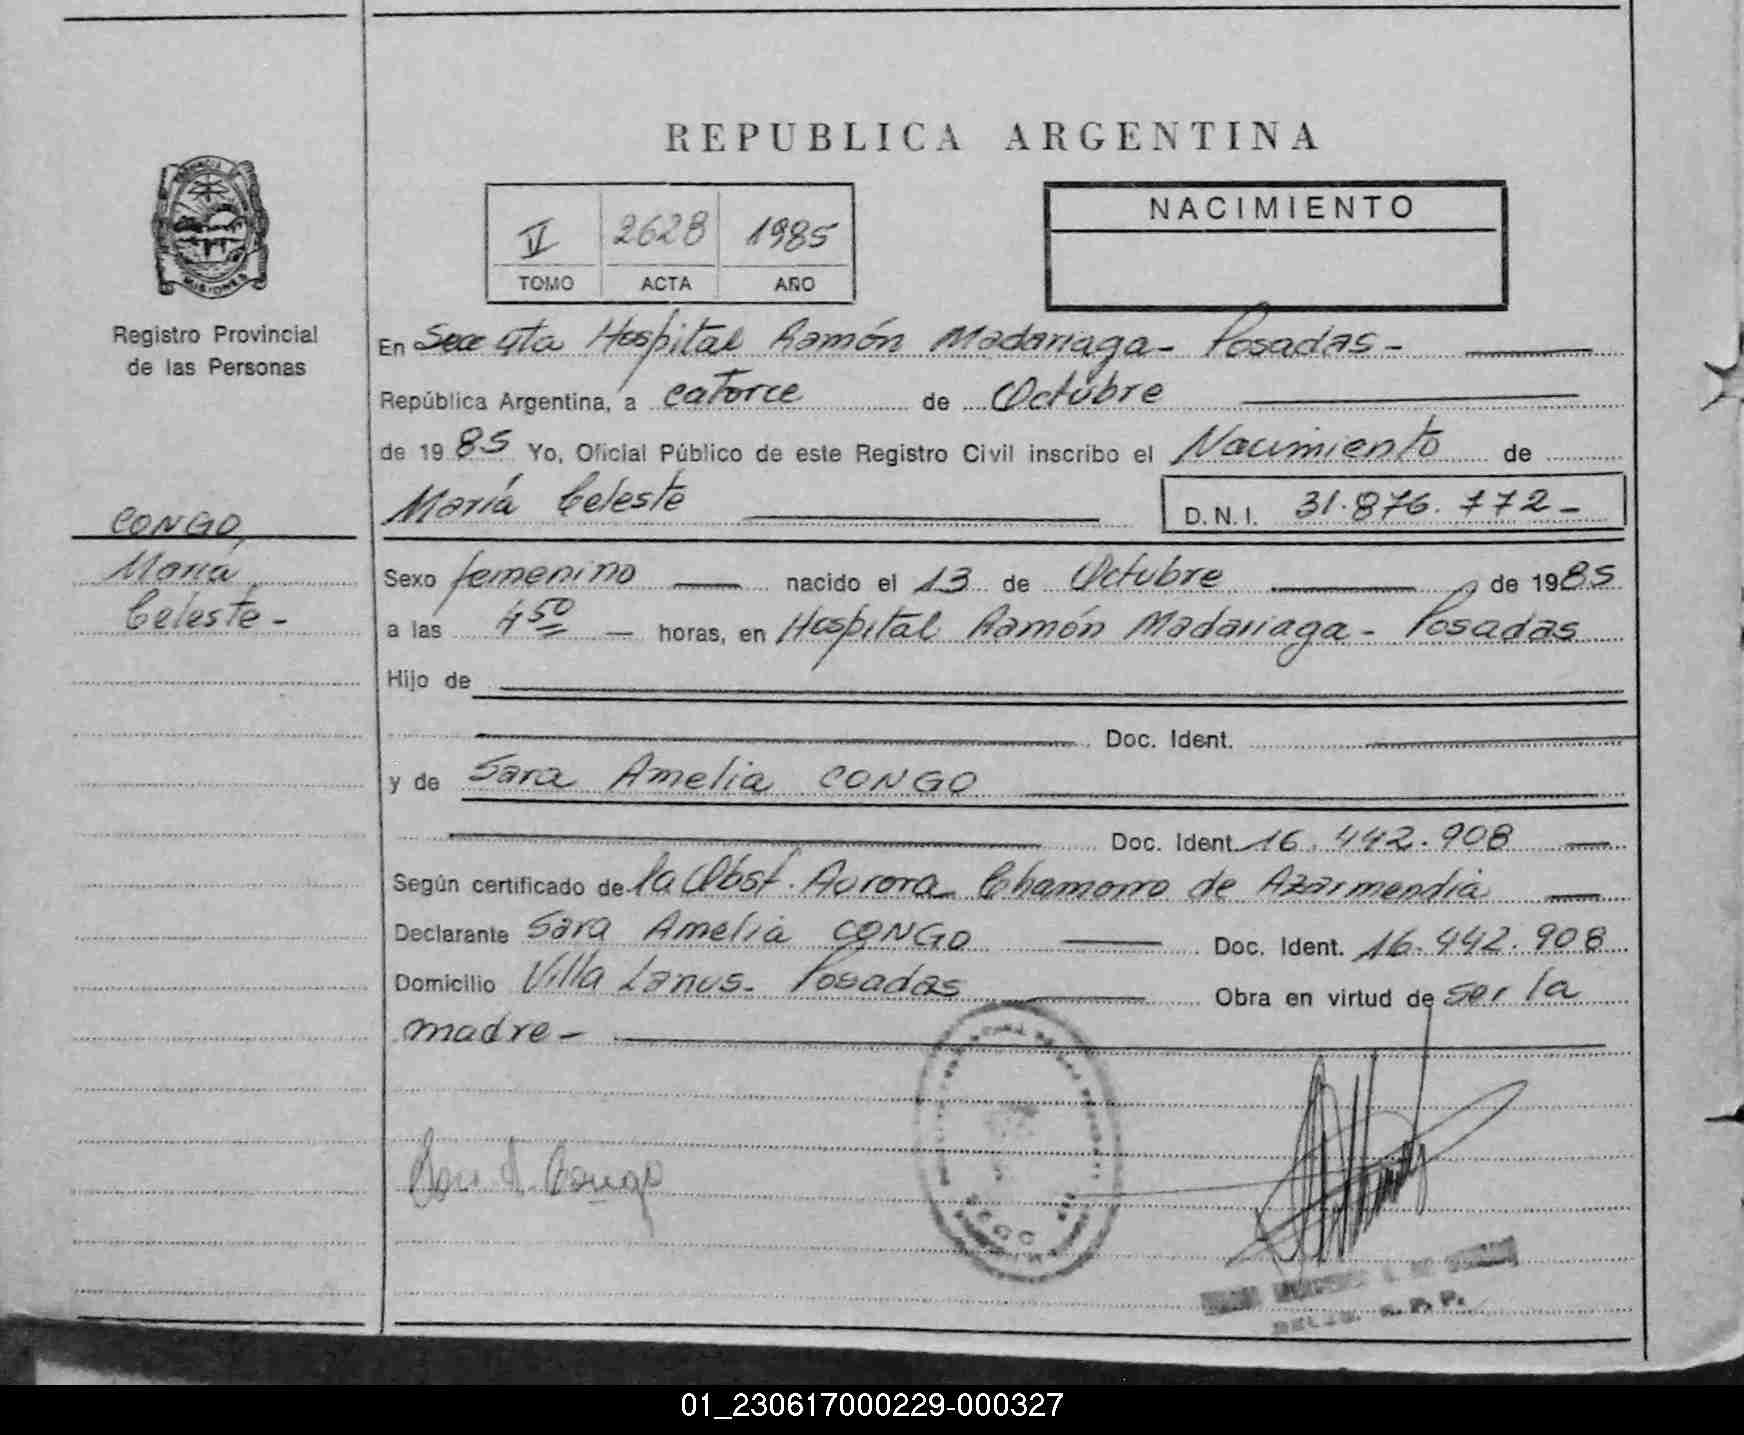 REPUBLICA ARGENTINA
MISIONES
Registro Provincial
de las Personas
CONGO,
María
Celeste -
2628 1985
TOMO ACTA AÑO
NACIMIENTO
En Secc 4ta Hospital Ramón Madariaga - Posadas -
República Argentina, a catorce de Octubre
de 1985 Yo, Oficial Público de este Registro Civil inscribo el Nacimiento de
María Celeste D.N.I. 31.876.772 -
Sexo femenino nacido el 13 de Octubre de 1985
a las 4 50 horas, en Hospital Ramón Madariaga - Posadas
Hijo de
Doc. Ident.
y de Sara Amelia CONGO
Doc. Ident. 16.442.908
Según certificado de la Obst. Aurora Chamorro de Azarmendia
Declarante Sara Amelia CONGO Doc. Ident. 16.442.908
Domicilio Villa Lanus - Posadas Obra en virtud de ser la
madre -
Congo
01_230617000229-000327